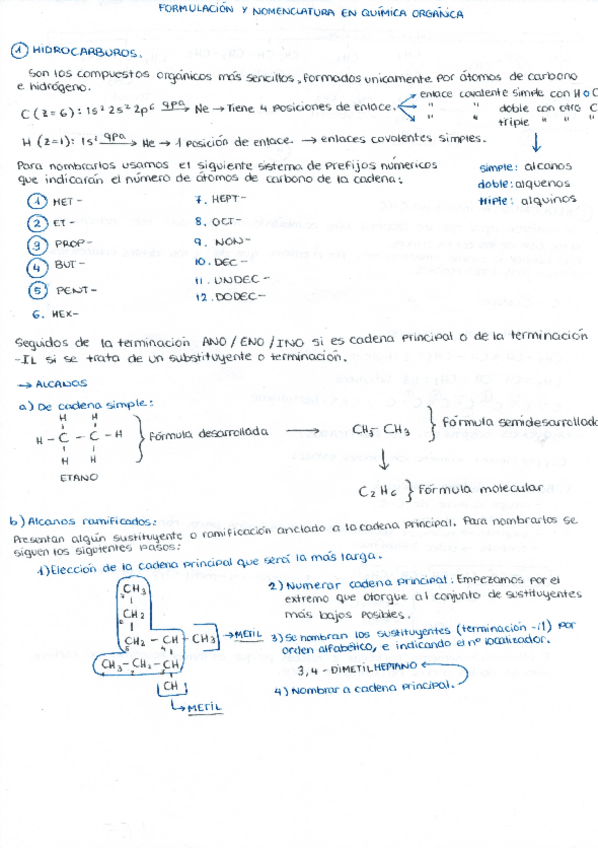 FORMULACIÓN Y NOMENCLATURA EN QUÍMICA ORGÁNICA
① HIDROCARBUROS.
Son los compuestos orgánicos más sencillos, formados unicamente por átomos de carbono
e hidrógeno.
enlace covalente simple con H o C
C (z=6): 1s² 2s² 2p⁶ gpa→ Ne → Tiene 4 posiciones de enlace. " " doble con otro C
" " triple " " "
H (z=1): 1s² gpa→ He → 1 posición de enlace. → enlaces covalentes simples.
Para nombrarlos usamos el siguiente sistema de prefijos numéricos
que indicarán el número de átomos de carbono de la cadena:
simple: alcanos
doble: alquenos
triple: alquinos
① MET-
② ET-
③ PROP-
④ BUT-
⑤ PENT-
6. HEX-
7. HEPT-
8. OCT-
9. NON-
10. DEC-
11. UNDEC-
12. DODEC-
Seguidos de la terminación ANO/ENO/INO si es cadena principal o de la terminación
-IL si se trata de un substituyente o terminación.
→ ALCANOS
a) De cadena simple:
H H
H - C - C - H } Fórmula desarrollada → CH₃- CH₃ } Fórmula semidesarrollada
H H
ETANO
C₂H₆ } Fórmula molecular
b) Alcanos ramificados:
Presentan algún sustituyente o ramificación anclado a la cadena principal. Para nombrarlos se
siguen los siguientes pasos:
1) Elección de la cadena principal que será la más larga.
CH₃
CH₂
CH₂ - CH - CH₃ → METIL
CH₃ - CH₂ - CH
CH
→ METIL
2) Numerar cadena principal: Empezamos por el
extremo que otorgue al conjunto de sustituyentes
más bajos posibles.
3) Se nombran los sustituyentes (terminación -il) por
orden alfabético, e indicando el nº localizador.
3,4 - DIMETILHEPTANO
4) Nombrar a cadena principal.